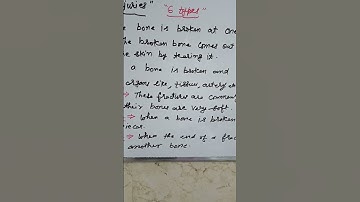 juries" "6 types"
e bone is broken at one
he broken bone comes out
e skin by tearing it.
a bone is broken and
organs like, tissue, artery
⇒ These fracture are common
their bones are very soft
⇒ When a bone is broken
⇒ When the end of a frac
another bone